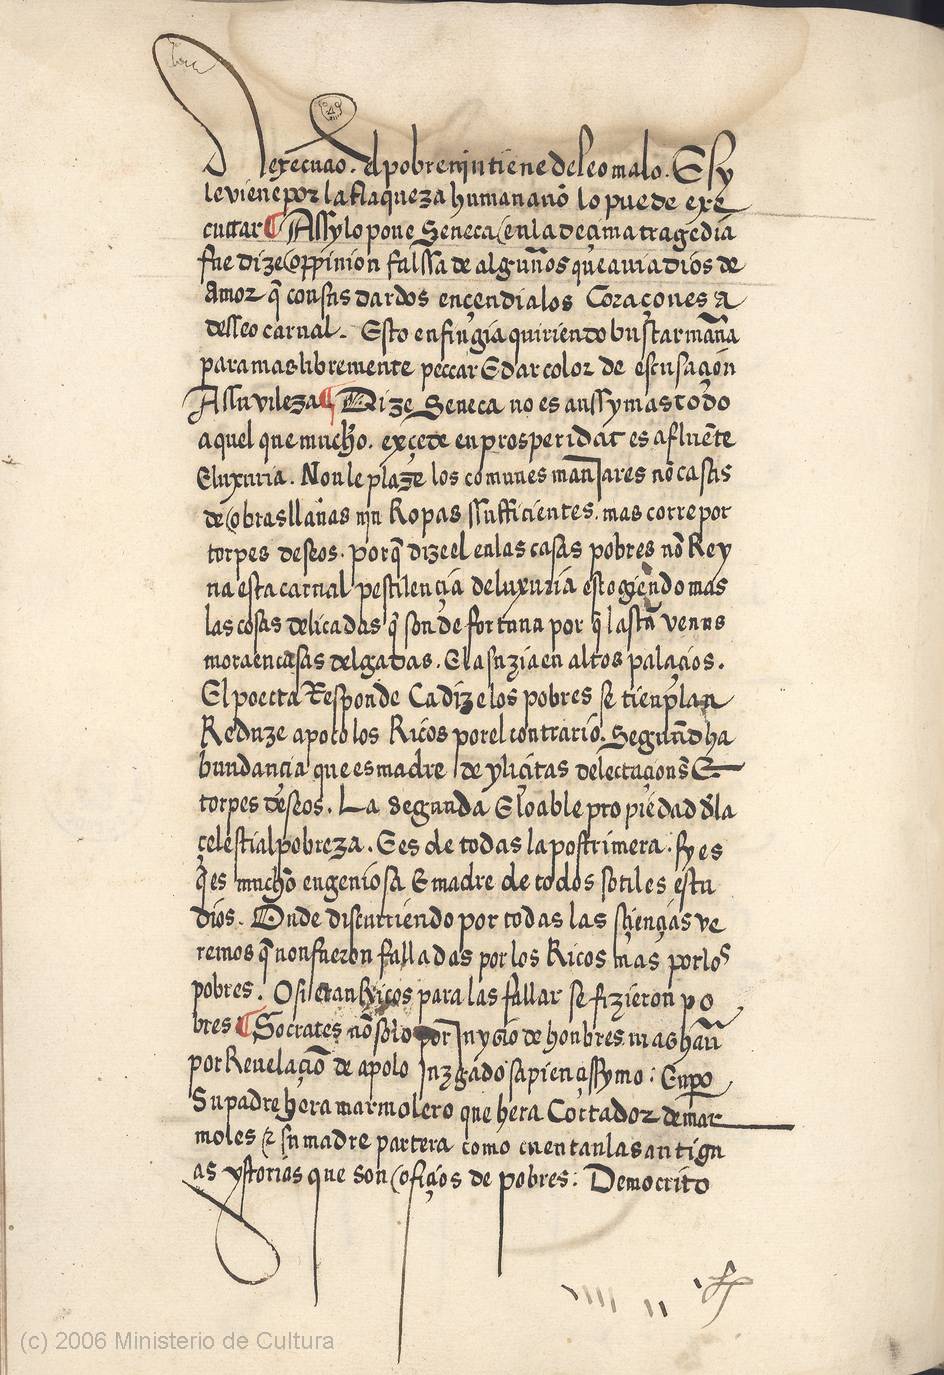 execuçio. el pobre nin tiene deseo malo. E sy
le viene por la flaqueza humana nō lo puede exe
cuttar ¶ Assy lo pone Seneca en la deçima tragedia
fue dize oppinion falssa de algunos que avia dios de
Amor q̄ con sus dardos ençendia los Coraçones a
desseo carnal. Esto enfingia quiriendo buscar maña
para mas libremente peccar E dar color de escusaçion
A ssu vileza ¶ Dize Seneca no es anssy mas todo
aquel que mucho. exçede en prosperidat es afluente
E luxuria. Non le plaze los comunes manjares nō casas
de obras llanas nin Ropas ssufficientes. mas corre por
torpes deseos. porq̄ dize el en las casas pobres nō Rey
na esta carnal pestilençia de luxuria escogiendo mas
las cosas delicadas q̄ son de fortuna por q̄ la stā venus
mora en casas delgadas. E la suzia en altos palaçios.
El poecta Responde Ca dize los pobres se tienplan
Reduze a poco los Ricos por el contrario. Segund ha
bundançia que es madre de yliçitas delectaçions E
torpes deseos. La segunda E loable propiedad dla
çelestial pobreza. E es de todas la postrimera. sy es
q̄ es mucho engeniosa E madre de todos sotiles estu
dios. Onde discurriendo por todas las sçiençias ve
remos q̄ non fueron falladas por los Ricos mas por los
pobres. O si eran Ricos para las fallar se fizieron po
bres ¶ Socrates nō solo por Juyçio de honbres mas haū
por Revelaçiō de apolo Juzgado sapientissymo: Enpo
Su padre hera marmolero que hera Cortador de mar
moles E su madre partera como cuentan las antigu
as ystorias que son ofiçios de pobres: Democrito
(c) 2006 Ministerio de Cultura